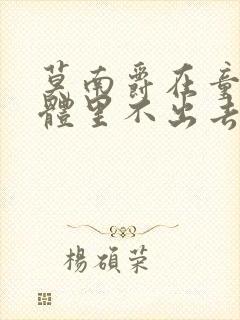 莫南爵在童
體里不出去
楊碩荣